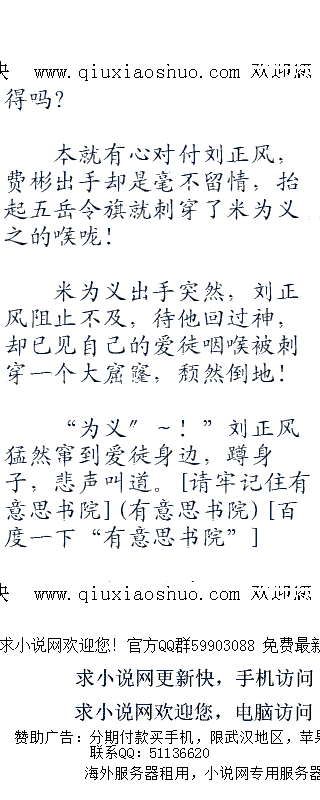 快 www.qiuxiaoshuo.com 欢迎您
得吗?
本就有心对付刘正风，
费彬出手却是毫不留情，抬
起五岳令旗就刺穿了米为义
之的喉咙!
米为义出手突然，刘正
风阻止不及，待他回过神，
却已见自己的爱徒咽喉被刺
穿一个大窟窿，颓然倒地!
“为义”~!”刘正风
猛然窜到爱徒身边，蹲身
子，悲声叫道。[请牢记住有
意思书院](有意思书院)[百
度一下“有意思书院”]
快 www.qiuxiaoshuo.com 欢迎您
求小说网欢迎您! 官方QQ群59903088 免费最新
求小说网更新快，手机访问
求小说网欢迎您，电脑访问
赞助广告: 分期付款买手机，限武汉地区，苹果
联系QQ: 51136620
海外服务器租用，小说网专用服务器